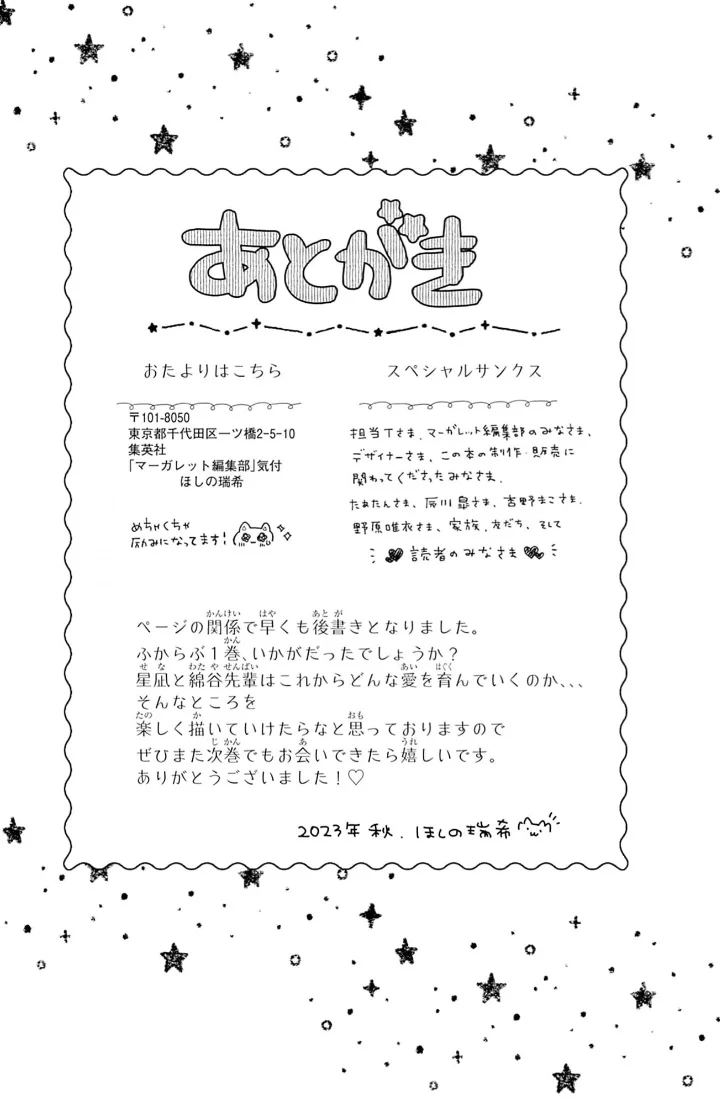 あとがき
おたよりはこちら
〒101-8050
東京都千代田区一ツ橋2-5-10
集英社
「マーガレット編集部」気付
ほしの瑞希
めちゃくちゃ
励みになってます!
スペシャルサンクス
担当Tさま、マーガレット編集部のみなさま、
デザイナーさま、この本の制作・販売に
関わってくださったみなさま、
たぁたんさま、灰川 皐さま、吉野まこさま、
野原唯衣さま、家族、友だち、そして
読者のみなさま
ページの関係で早くも後書きとなりました。
ふからぶ1巻、いかがだったでしょうか?
星凪と綿谷先輩はこれからどんな愛を育んでいくのか、、、
そんなところを
楽しく描いていけたらなと思っておりますので
ぜひまた次巻でもお会いできたら嬉しいです。
ありがとうございました!♡
2023年 秋. ほしの瑞希